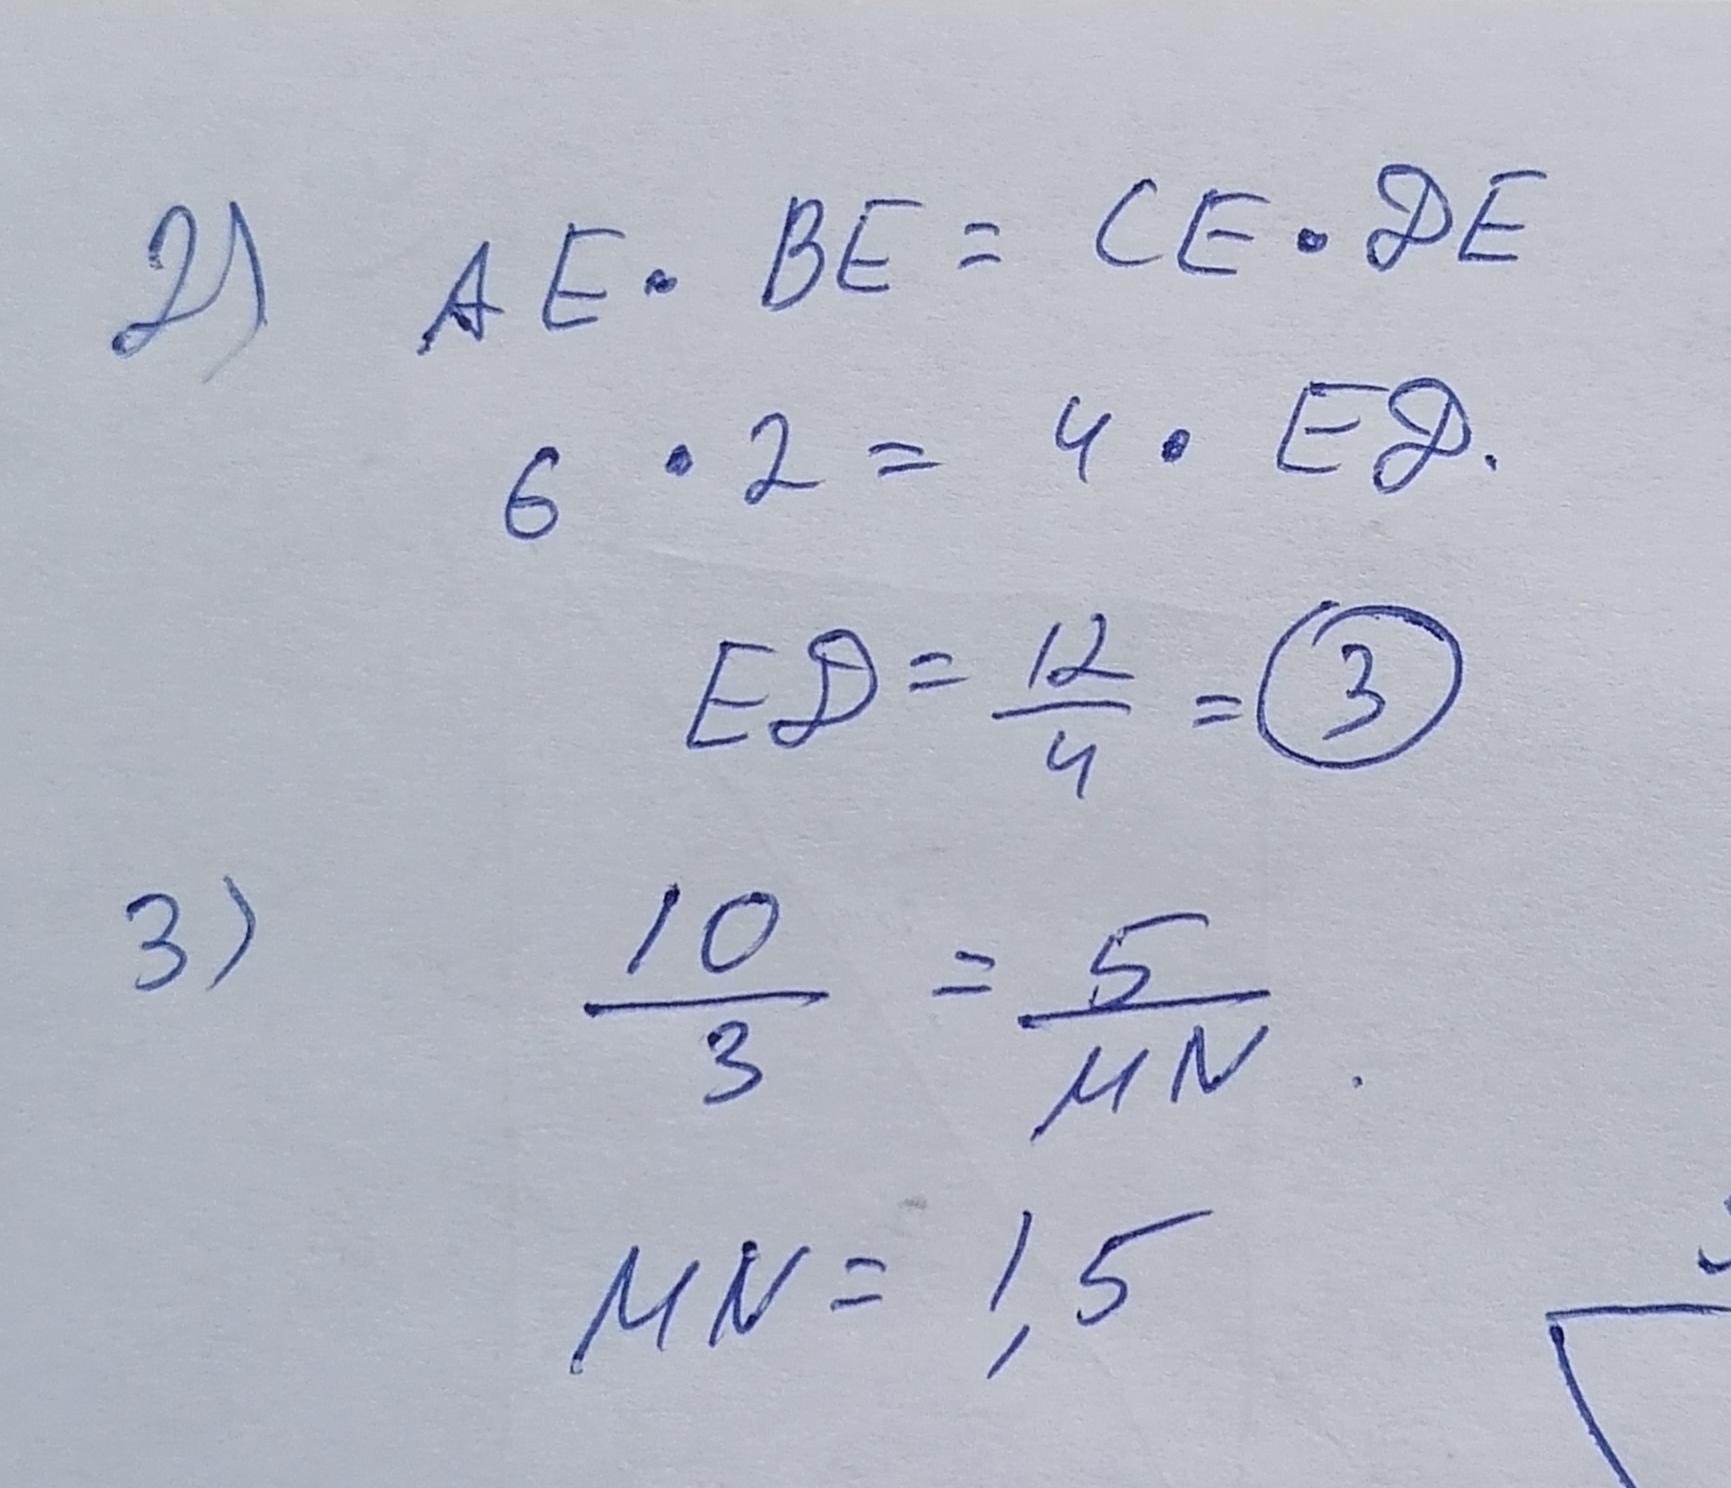 2) AE · BE = CE · DE
6 · 2 = 4 · ED.
ED = 12/4 = 3
3) 10/3 = 5/MN.
MN = 1,5